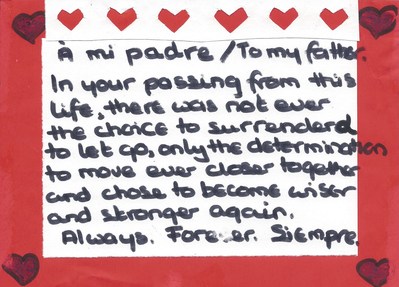 À mi padre / To my father.
In your passing from this
life, there was not ever
the choice to surrenderd
to let go, only the determination
to move ever closer together
and chose to become wiser
and stronger again.
Always. Forever. Siempre.